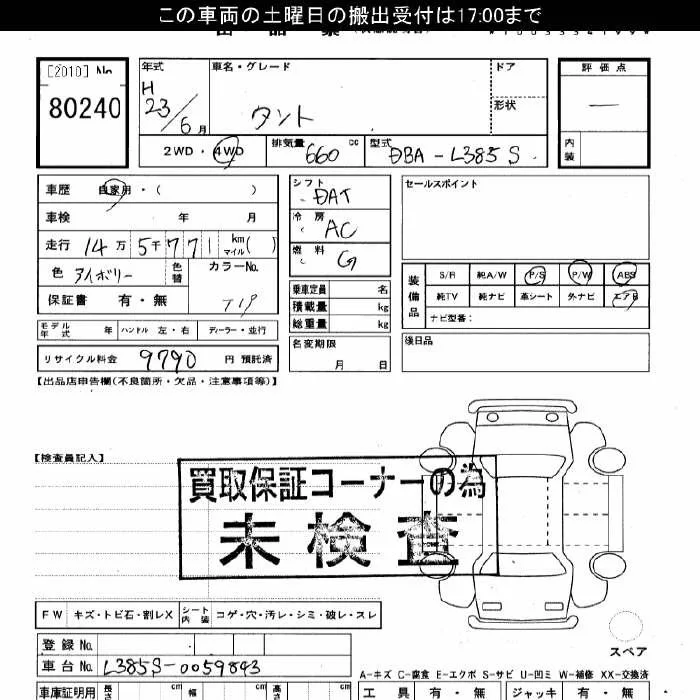 この車両の土曜日の搬出受付は17:00まで
[2010] No
80240
年式 H 23/6月
車名・グレード タント
ドア
形状
2WD・4WD
排気量 660 cc
型式 DBA-L385S
評価点 —
内装
車歴 自家用・( )
車検 年 月
走行 14万5千771 km マイル( )
色 アイボリー 色替 カラーNo. T19
保証書 有・無
シフト DAT
冷房 AC
燃料 G
乗車定員 名
積載量 kg
総重量 kg
名変期限 月 日
セールスポイント
装備品
S/R 純A/W P/S P/W ABS
純TV 純ナビ 革シート 外ナビ エアB
ナビ型番:
後日品
モデル年式 年 ハンドル 左・右 ディーラー・並行
リサイクル料金 9790 円 預託済
【出品店申告欄(不良箇所・欠品・注意事項等)】
【検査員記入】
買取保証コーナーの為
未検査
FW キズ・トビ石・割レX シート内装 コゲ・穴・汚レ・シミ・破レ・スレ
スペア
登録No.
車台No. L385S-0059843
A-キズ C-腐食 E-エクボ S-サビ U-凹ミ W-補修 XX-交換済
車庫証明用 長さ cm 幅 cm 高さ cm
工具 有・無 ジャッキ 有・無